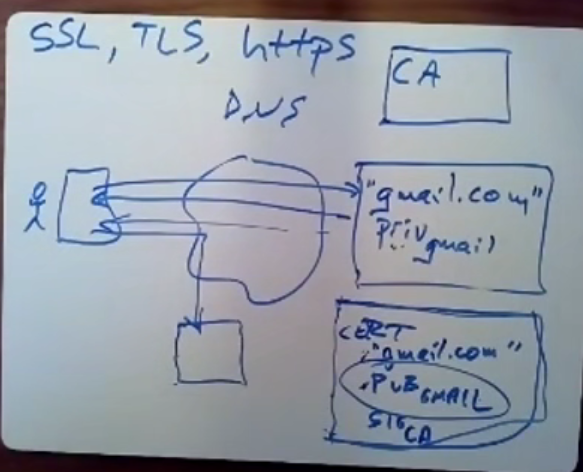 SSL, TLS, https
DNS
CA
"gmail.com"
priv gmail
CERT
"gmail.com"
PUB GMAIL
SIG CA